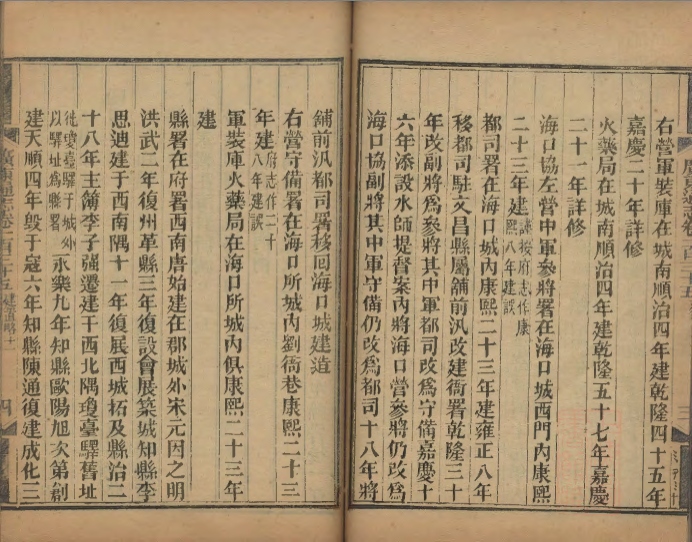 右營軍裝庫在城南順治四年建乾隆四十五年
嘉慶二十年詳修
火藥局在城南順治四年建乾隆五十七年嘉慶
二十一年詳修
海口協左營中軍參將署在海口城西門內康熙
二十三年建謹按府志作康熙八年建誤
都司署在海口城內康熙二十三年建雍正八年
移都司駐文昌縣屬舖前汛改建衙署乾隆三十
年改副將爲參將其中軍都司改爲守備嘉慶十
六年添設水師提督案內將海口營參將仍改爲
海口協副將其中軍守備仍改爲都司十八年將
廣東通志卷二百二十五
建置略十一
四
舖前汛都司署移回海口城建造
右營守備署在海口所城內劉衙巷康熙二十三
年建府志作二十八年建誤
軍裝庫火藥局在海口所城內俱康熙二十三年
建
縣署在府署西南唐始建在郡城外宋元因之明
洪武二年復州革縣三年復設會展築城知縣李
思迪建于西南隅十一年復展西城拓及縣治二
十八年主簿李子強遷建于西北隅瓊臺驛舊址
徙瓊臺驛于城外以驛址爲縣署永樂九年知縣歐陽旭次第剏
建天順四年毀于寇六年知縣陳通復建成化三